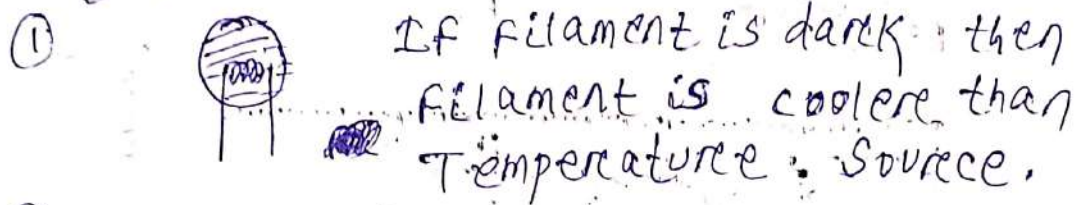 ① If filament is dark then
filament is cooler than
Temperature Source.